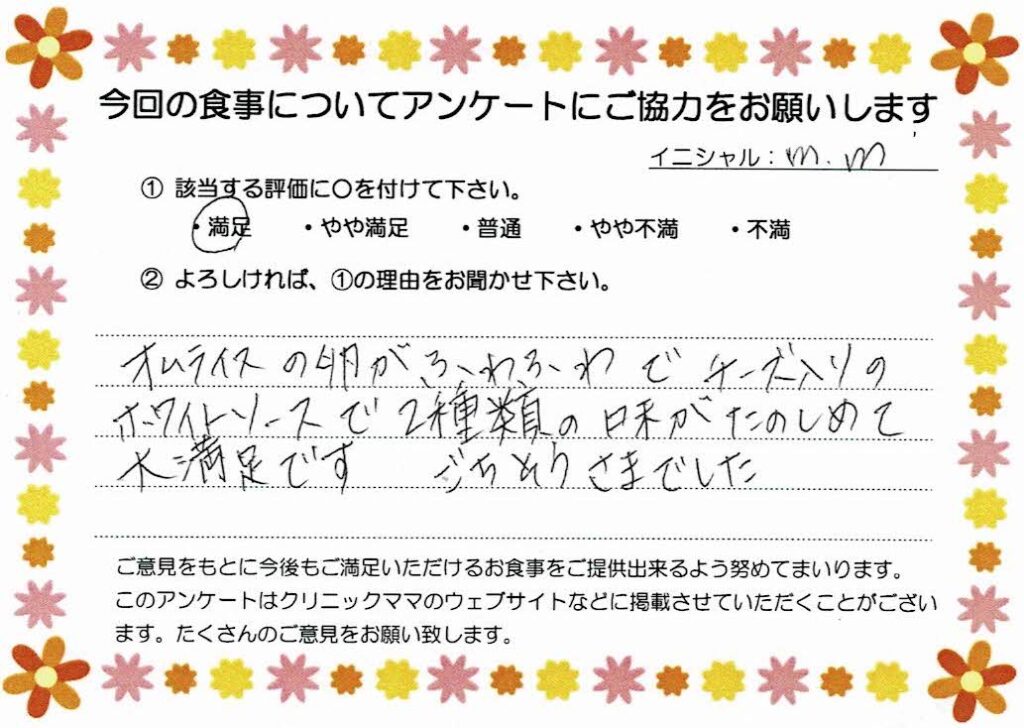 今回の食事についてアンケートにご協力をお願いします
イニシャル：m.m
① 該当する評価に〇を付けて下さい。
・満足 ・やや満足 ・普通 ・やや不満 ・不満
② よろしければ、①の理由をお聞かせ下さい。
オムライスの卵がふわふわでチーズ入りの
ホワイトソースで2種類の味がたのしめて
大満足です ごちそうさまでした
ご意見をもとに今後もご満足いただけるお食事をご提供出来るよう努めてまいります。
このアンケートはクリニックママのウェブサイトなどに掲載させていただくことがござい
ます。たくさんのご意見をお願い致します。